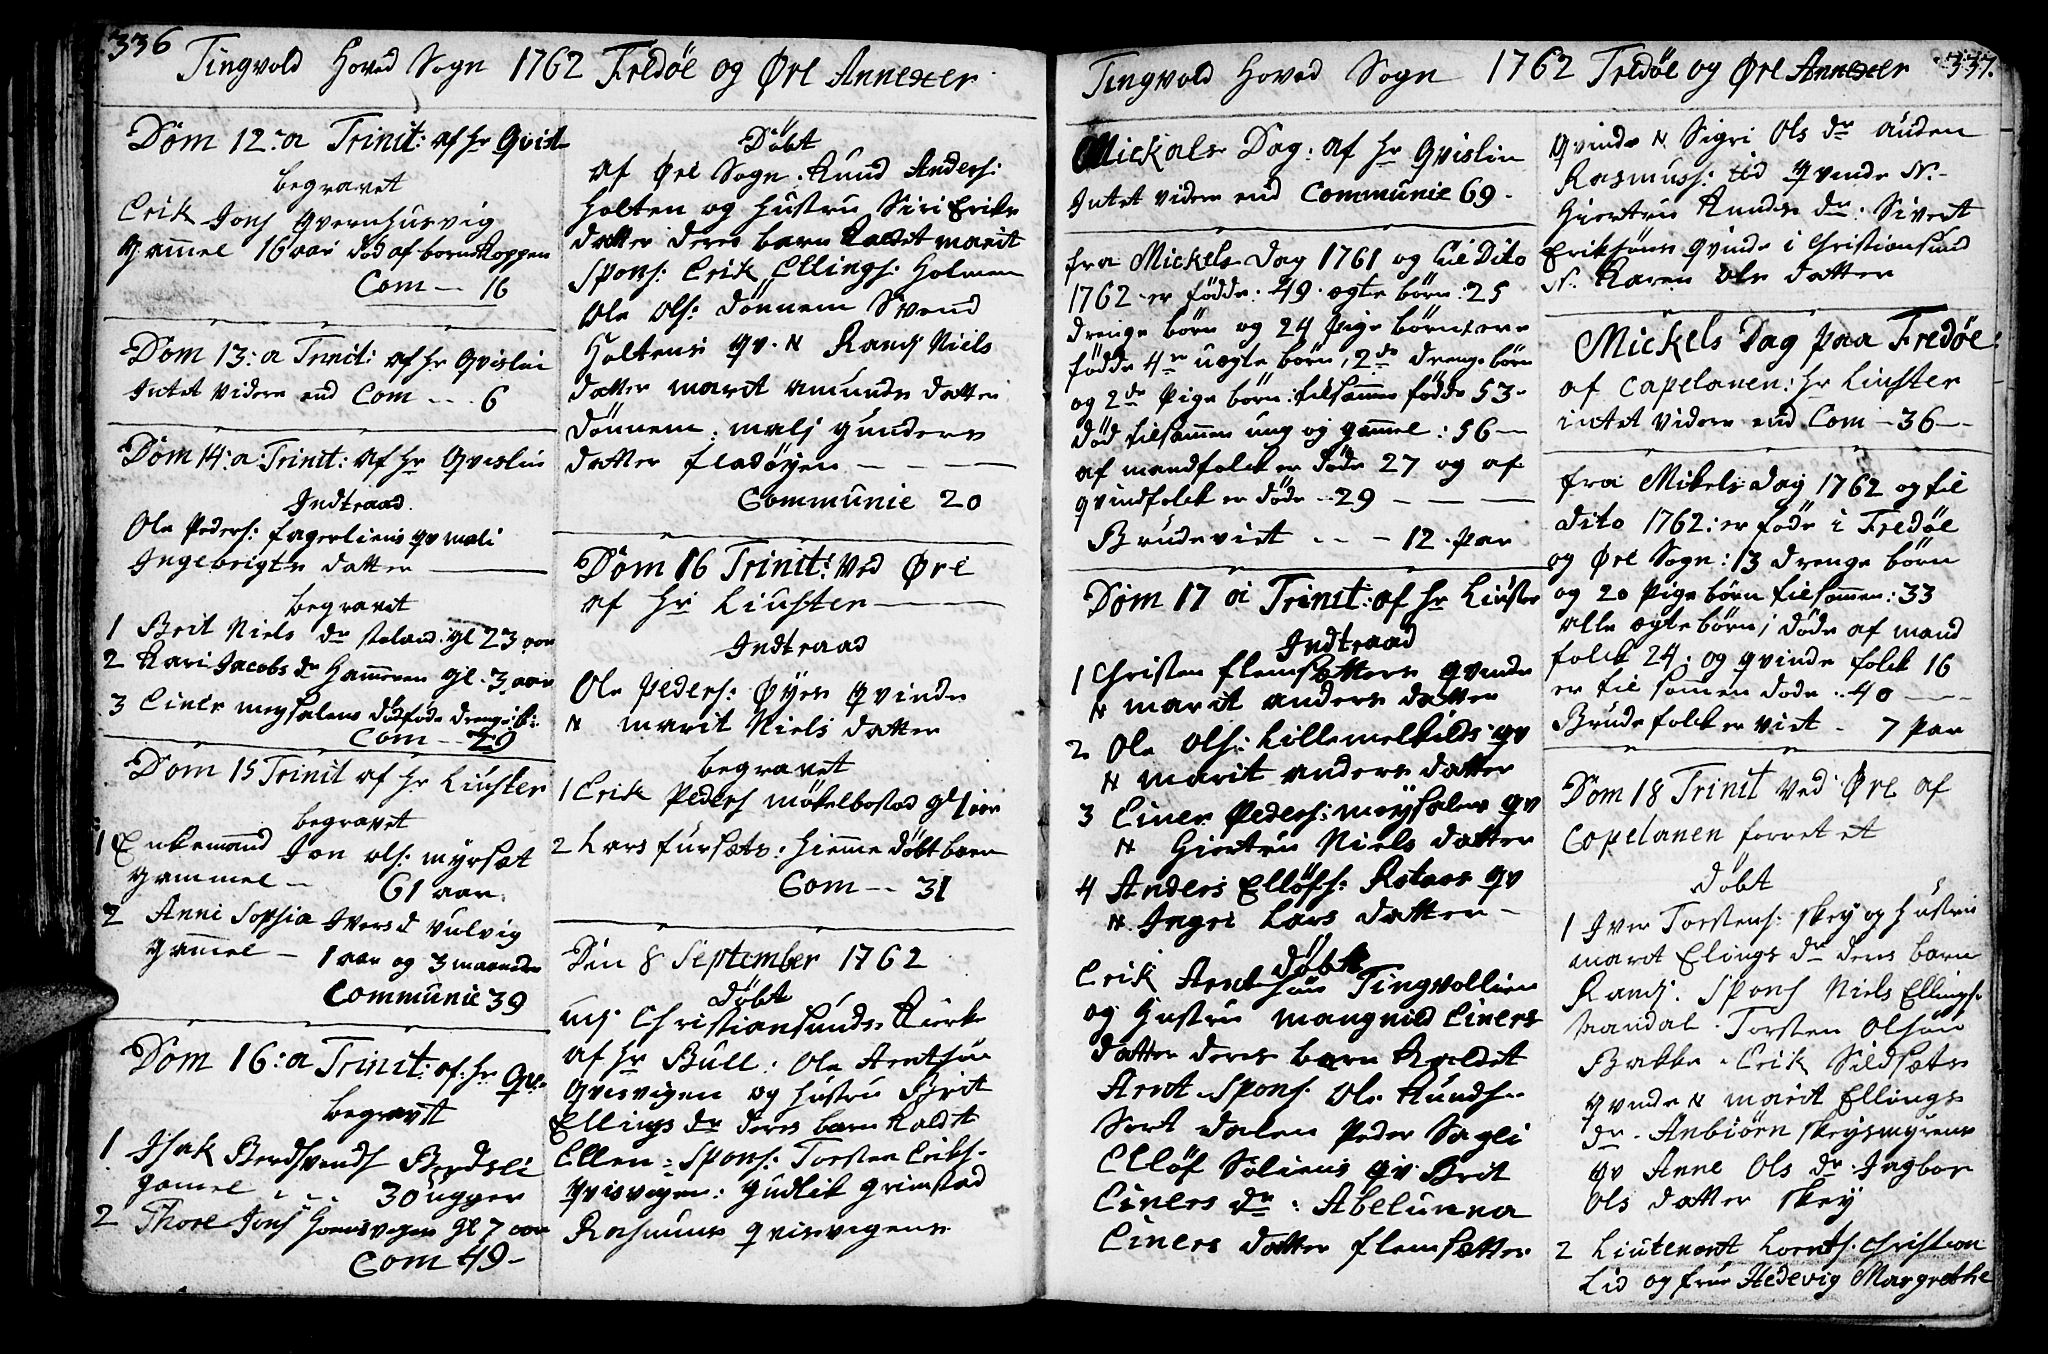 336
Tingvold Hoved Sogn 1762 Fredøe og Øre Annexer
Dom 12: a Trinit: af hr Qvist
begravet
Erik Jons Qvernhusvig
Gamel 16 aar død af börnekoppen
Com — 16
Dom 13: a Trinit: af hr Qvislin
Intet videre end Com --- 6
Dom 14: a Trinit: af hr Qvislin
Indtraad
Ole Peders: fagerliens qv mali
Ingebrigts datter
begravet
1 Brit Niels dr staland: gl 23 aar
2 Kari Jacobs dr Hameren gl. 3 aar
3 Einer meysalens dödföde drenge b:
Com -- 29
Dom 15 Trinit af hr Liuster
begravet
1 Enkemand Jon ols: myrsæt
gammel — 61 aar
2 Anne Sophia Ivers d vulvig
gamel — 1 aar og 3 maaneder
Communie 39
Dom 16: a Trinit: af: hr Qvs
begravet
1 Isak Berdsvends Berdsli
gamel - - 30 ugger
2 Thore Jons Honsvegen gl 7 aar
Com 49 -
Døbt
af Øre Sogn. Knud Anders:
Holten og hustru Siri Eriks
datter deres barn kaldet marit
Spons: Erik Ellings: Holmen
Ole Ols: Dönnem Svend
Holtens qv. N Randj Niels
datter marit amunds datter
Dönnem: malj gunders
datter fladöyen — — —
Communie 20
Dom 16 Trinit: ved Øre
af hr Liuster
Indtraad
Ole Peders: Øyes qvinde
N marit Niels datter
begravet
1 Erik Peders mökelbostad gl 1 aar
2 Lars fursæts: hieme døbt barn
Com -- 31
Den 8 September 1762
Døbt
udj Christiansunds Kierke
af hr Bull: Ole Arentsen
Qvisvigen og hustru Brit
Ellings dr deres barn kaldt
Ellen: Spons: Torsten Eriks.
Qvisvigen: Gudlik grimstad
Rasmus qvisvigens
337.
Tingvold Hoved Sogn 1762 Fredøe og Øre Annexer
Mickals Dag: af hr Qvislin
Intet videre end Communie 69 -
fra Mickels Dag 1761 og til Dito
1762 er födde: 49 ægte börn: 25
drenge börn og 24 Pige börn: ere
födde 4re uægte börn, 2de drenge börn
og 2de Pige börn: tilsammen födde 53 -
död tilsammen ung og gammel: 56 —
af mandfolck er döde 27 og af
qvindfolck er döde -- 29 — — —
Brudeviet - - - 12. par
Dom 17 a Trinit: af hr Liuster
Indtraad
1 Christen flemsætters qvinde
N marit anders datter
2 Ole Ols: Lillemelkilds qv
N marit anders datter
3 Einer Peders: meysalens qv
N Giertru Niels datter
4 Anders Ellöfs: Rotaas qv
N. Ingri Lars datter —
døbt
Erik Arentsen Tingvollien
og hustru mangnild Einers
datter deres barn kaldet
Arnt. Spons: Ole Knudsen
Sört dalen Peder Sagli
Ellöf Soliens qv: Brit
Einers dr: Abelunna
Einers datter flemsætter
Qvinde N Sigri Ols dr auden
Rasmuss: tid qvinde N. -
Giertru Knuds dr: Sivert
Eriksöns qvinde i Christiansund
N. Karen ols datter
Mickels Dag paa Fredøe:
af Capelanen: hr Liuster
intet videre end Com — 36 —
fra Mikels dag 1762 og til
dito 1762: er föde i Fredøe
og Øre Sogn: 13 drenge börn
og 20 pige börn tilsammen: 33
alle ægte börn; döde af mand
folck 24: og qvinde folck 16
er til samen döde .. 40 —
Brudefolck er viet - 7 par
Dom 18 Trinit ved Øre af
Copelanen forrettet
Døbt
1 Iver Torstens: skey og hustru
marit Elings dr deres barn
Randj. Spons Niels Ellings:
Torsten Olsøn
Bakke. Erik Sildsæts
qvinde N marit Ellings
dr. Anbiörn Skeysmyrens
qv Anne Ols dr. Ingbor
Ols datter Skey
2 Liutenant Lorents: Christian
Lid og frue Hedevig Margrethe